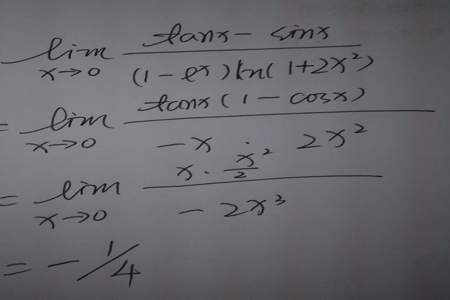 lim x→0 (tanx - sinx) / ((1 - eˣ) ln(1+2x²))
= lim x→0 (tanx(1 - cosx)) / (-x 2x²)
= lim x→0 (x · x²/2) / (-2x³)
= - 1/4